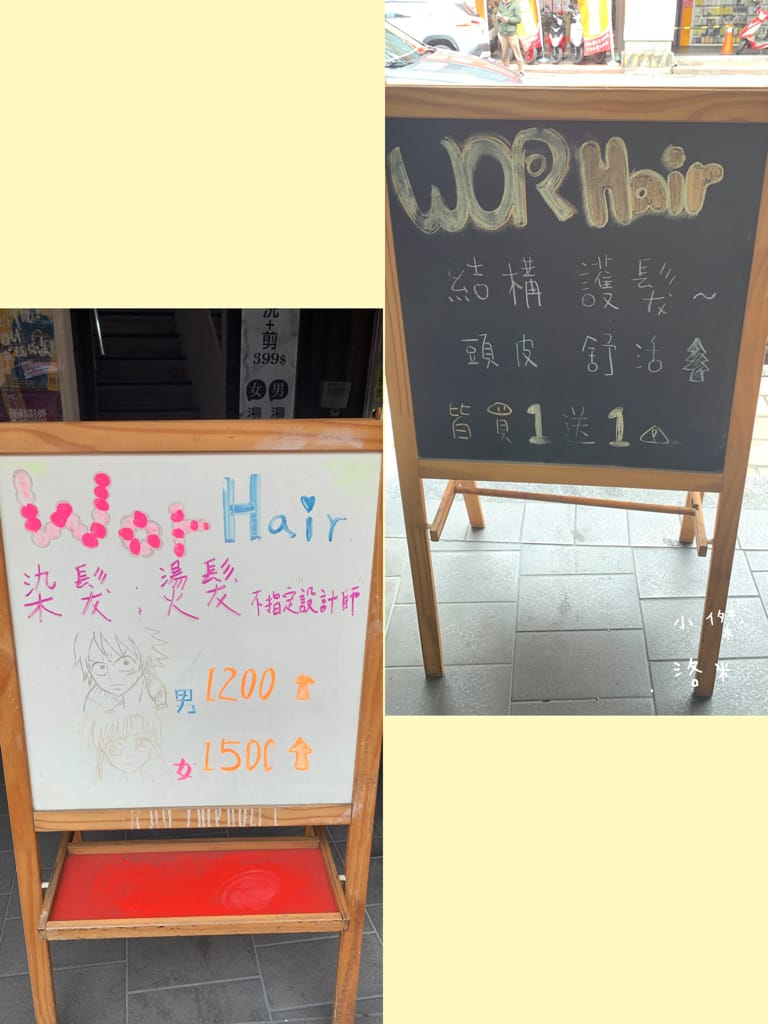 WOR Hair
結構 護髮～
頭皮 舒活
皆買1送1
小傑
洛米
洗+剪
399$
女 男
湯 湯
Wor Hair
染髮、燙髮 不指定設計師
男 1200
女 1500